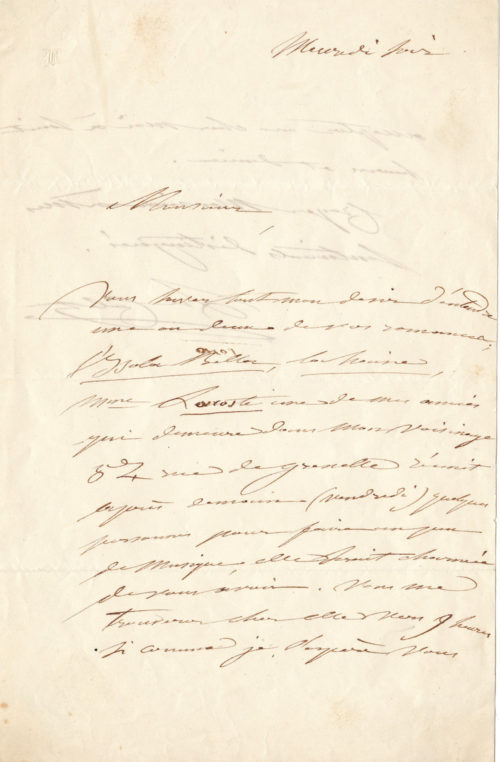 Mercredi soir
Monsieur
Vous savez tout mon desir d'entendre
une ou deux de vos romances,
l'Isola Bella, la Haine,
Mme Lacoste une de mes amies
qui demeure dans mon voisinage
84 rue de Grenelle réunit
après demain (vendredi) quelques
personnes pour faire un peu
de Musique, elle serait charmée
de vous avoir. Vous me
trouverez chez elle vers 9 heures
si comme je l'espère vous